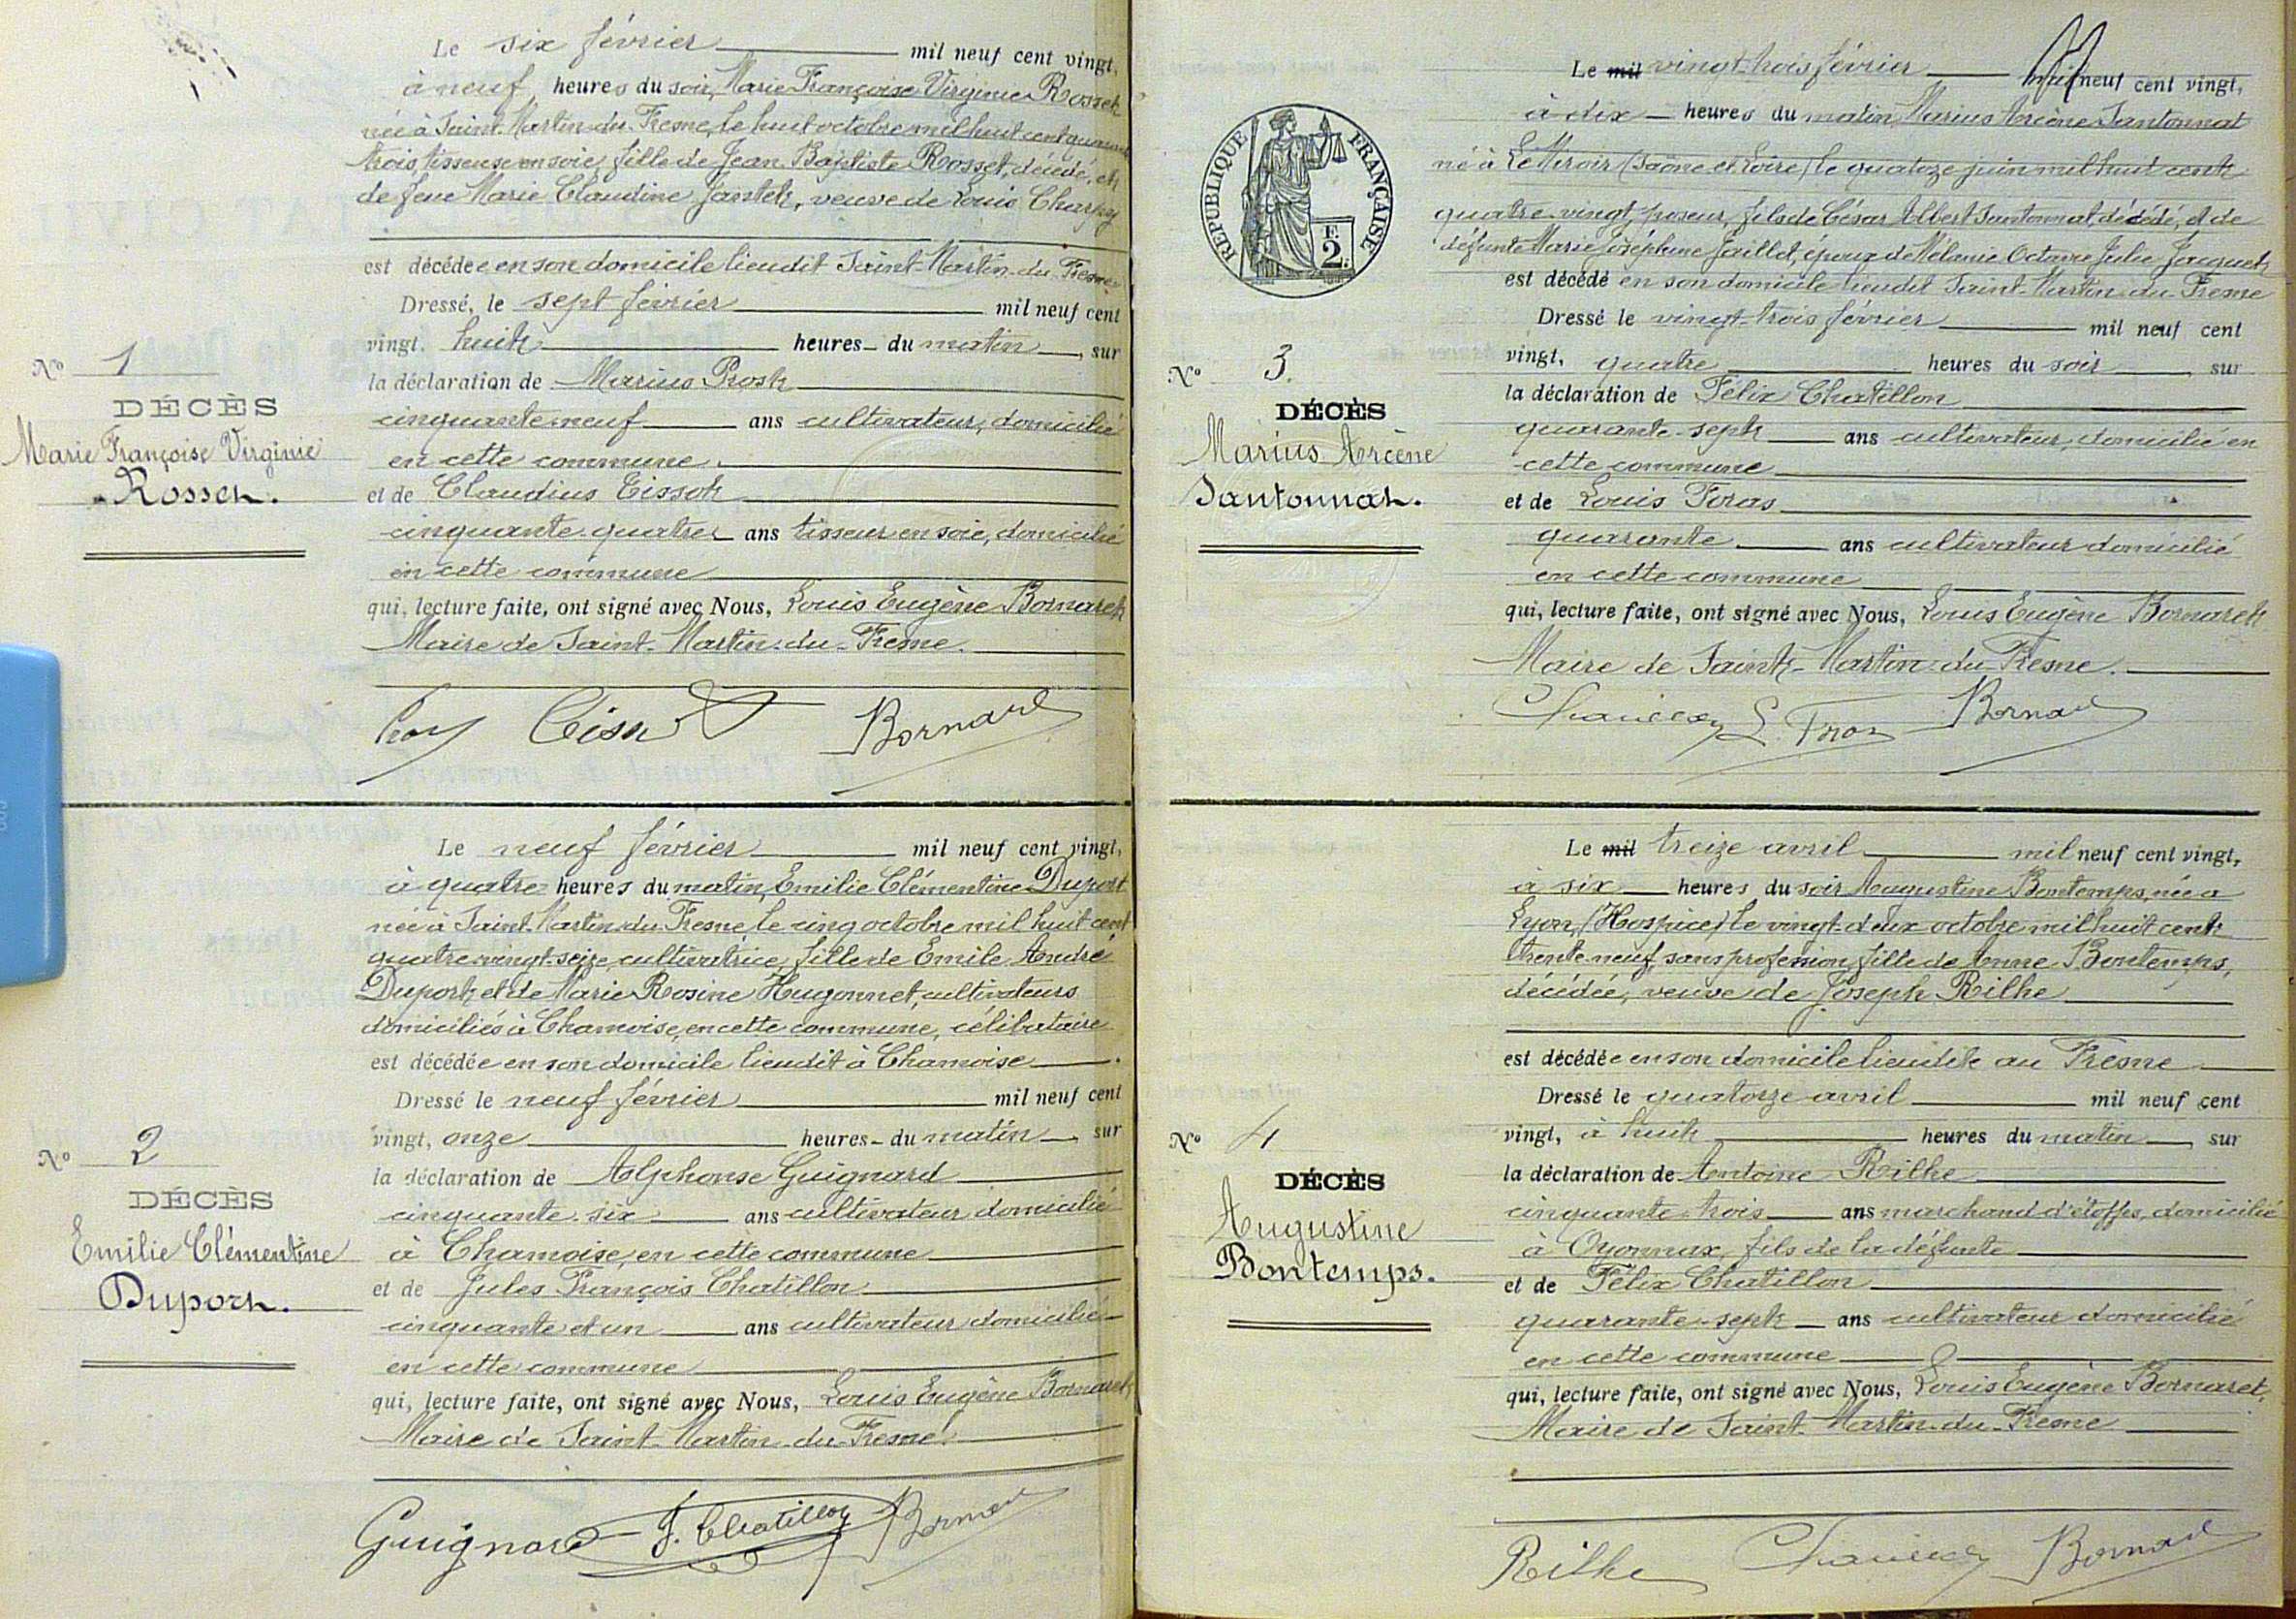 Le six février mil neuf cent vingt,
à neuf heures du soir, Marie Françoise Virginie Rosset
née à Saint-Martin-du-Fresne, le huit octobre mil huit cent quarante
trois, tisseuse en soie, fille de Jean Baptiste Rosset, décédé, et
de feue Marie Claudine Jantet, veuve de Louis Charpy
est décédée en son domicile lieudit Saint-Martin-du-Fresne
Dressé, le sept février mil neuf cent
vingt. huit heures du matin, sur
la déclaration de Marius Prost
cinquante-neuf ans cultivateur, domicilié
en cette commune.
et de Claudius Tissot
cinquante-quatre ans tisseur en soie, domicilié
en cette commune
qui, lecture faite, ont signé avec Nous, Louis Eugène Bornaret
Maire de Saint-Martin-du-Fresne.
Bornaret
No 1
DÉCÈS
Marie Françoise Virginie
Rosset.
Le neuf février mil neuf cent vingt,
à quatre heures du matin, Emilie Clémentine Duport
née à Saint-Martin-du-Fresne le cinq octobre mil huit cent
quatre-vingt-seize, cultivatrice, fille de Emile André
Duport et de Marie Rosine Hugonnet, cultivateurs
domiciliés à Chamoise, en cette commune, célibataire
est décédée en son domicile lieudit à Chamoise.
Dressé le neuf février mil neuf cent
vingt, onze heures du matin, sur
la déclaration de Alphonse Guignard
cinquante-six ans cultivateur domicilié
à Chamoise, en cette commune
et de Jules François Chatillon
cinquante et un ans cultivateur domicilié
en cette commune
qui, lecture faite, ont signé avec Nous, Louis Eugène Bornaret
Maire de Saint-Martin-du-Fresne.
Guignard J. Chatillon Bornaret
No 2
DÉCÈS
Emilie Clémentine
Duport.
Le mil vingt-trois février mil neuf cent vingt,
à dix heures du matin, Marius Arcène Santonnat
né à Le Miroir (Saône et Loire) le quatoze juin mil huit cent
quatre-vingt, poseur, fils de César Albert Santonnat, décédé, et de
défunte Marie Joséphine Jaillet, époux de Mélanie Octavie Julie Jacquet
est décédé en son domicile lieudit Saint-Martin-du-Fresne
Dressé le vingt-trois février mil neuf cent
vingt, quatre heures du soir, sur
la déclaration de Félix Chatillon
quarante-sept ans cultivateur, domicilié en
cette commune
et de Louis Foras
quarante ans cultivateur domicilié
en cette commune
qui, lecture faite, ont signé avec Nous, Louis Eugène Bornaret
Maire de Saint-Martin-du-Fresne.
Bornaret
RÉPUBLIQUE FRANÇAISE
F.
2.
No 3.
DÉCÈS
Marius Arcène
Santonnat.
Le mil treize avril mil neuf cent vingt,
à six heures du soir Augustine Bontemps, née a
Lyon, (Hospice) le vingt-deux octobre mil huit cent
trente-neuf, sans profession, fille de Anne Bontemps,
décédée, veuve de Joseph Rilhe
est décédée en son domicile lieudit au Fresne
Dressé le quatorze avril mil neuf cent
vingt, à huit heures du matin, sur
la déclaration de Antoine Rilhe
cinquante-trois ans marchand d'étoffes, domicilié
à Oyonnax, fils de la défunte
et de Félix Chatillon
quarante-sept ans cultivateur domicilié
en cette commune
qui, lecture faite, ont signé avec Nous, Louis Eugène Bornaret,
Maire de Saint-Martin-du-Fresne
Rilhe Bornaret
No 4
DÉCÈS
Augustine
Bontemps.